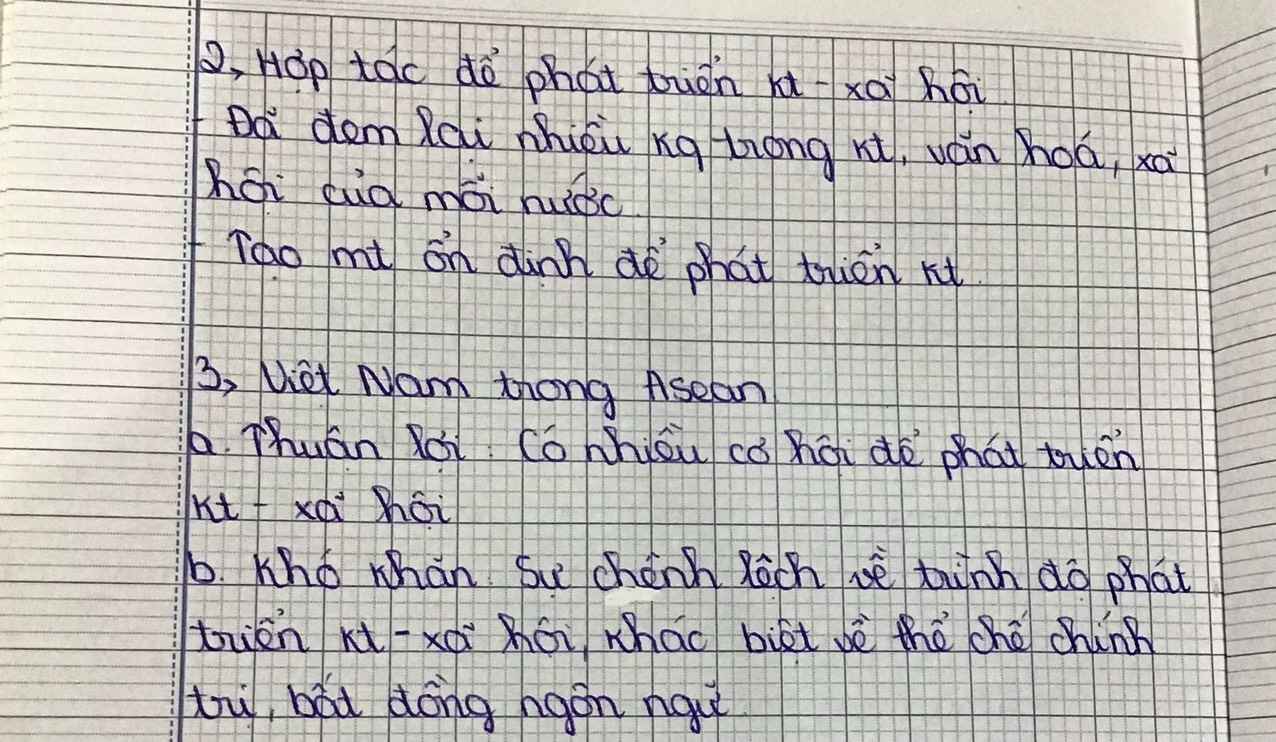 2, Hợp tác để phát triển kt - xã hội
- Đã đem lại nhiều kq trong kt, văn hoá, xã
hội của mỗi nước.
- Tạo mt ổn định để phát triển kt.
3, Việt Nam trong Asean
a. Thuận lợi: Có nhiều cơ hội để phát triển
kt - xã hội
b. Khó khăn. Sự chênh lệch về trình độ phát
triển kt - xã hội, khác biệt về thể chế chính
trị, bất đồng ngôn ngữ.